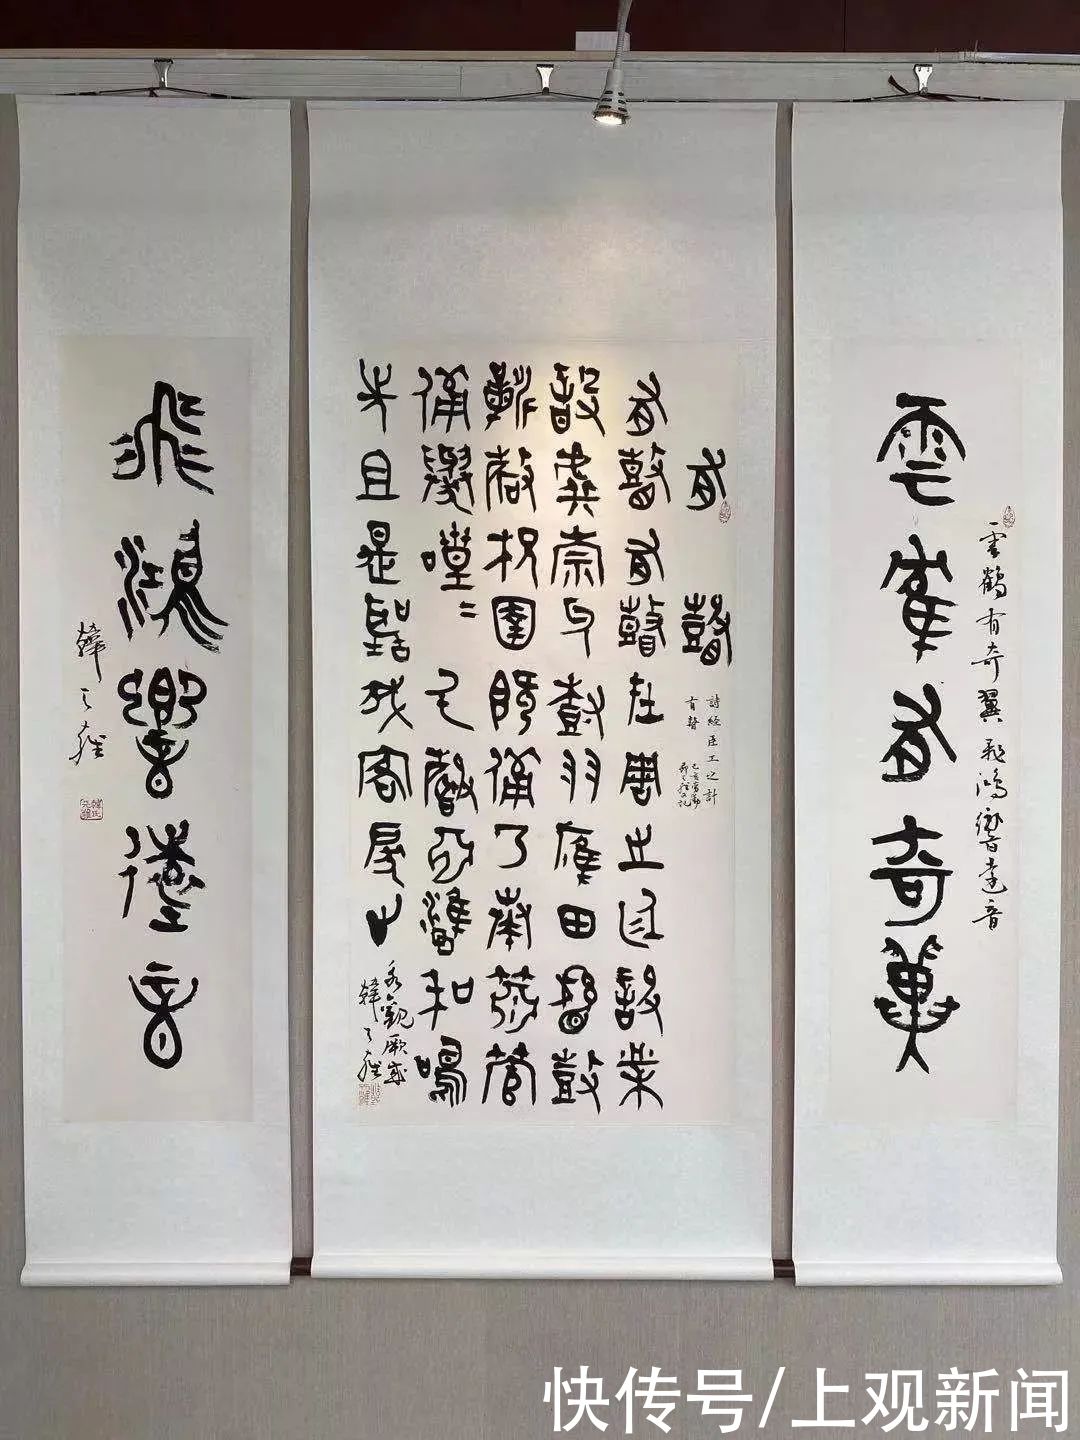 雲鶴有奇翼飛鴻響遠音
雲鶴有奇翼
有瞽
詩經臣工之計
有瞽
有瞽有瞽在周之庭設業
設虡崇牙樹羽應田縣鼓
鞉磬柷圉既備乃奏簫管
備舉喤喤厥聲肅雝和鳴
先且是聽我客戾止
永觀厥成
韓天雍
飛鴻響遠音
韓天雍
快传号/上观新闻